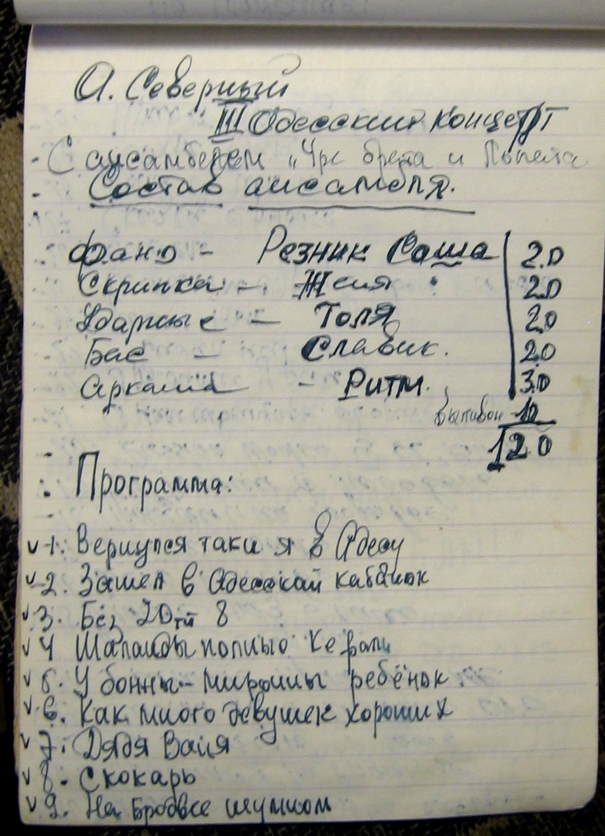 А. Северный
III Одесский концерт
С ансамблем „Чре брата и
Состав ансамбля.
Фано – Резник Саша 20
Скрипка – Женя 20
Ударные – Толя 20
Бас – Славик. 20
Аркаша – Ритм. 30
10
120
Программа:
v 1. Вернулся таки я в Одесу
v 2. Зашел в Одесский кабачок
v 3. Без 20ти 8
v 4 Шаланды полныо Кефали
v 5. У бонны-Мироины ребёнок
v 6. Как много девушек хороших
v 7. Дядя Ваня
v 8. Скокарь
v 9. На Бродвее шумном